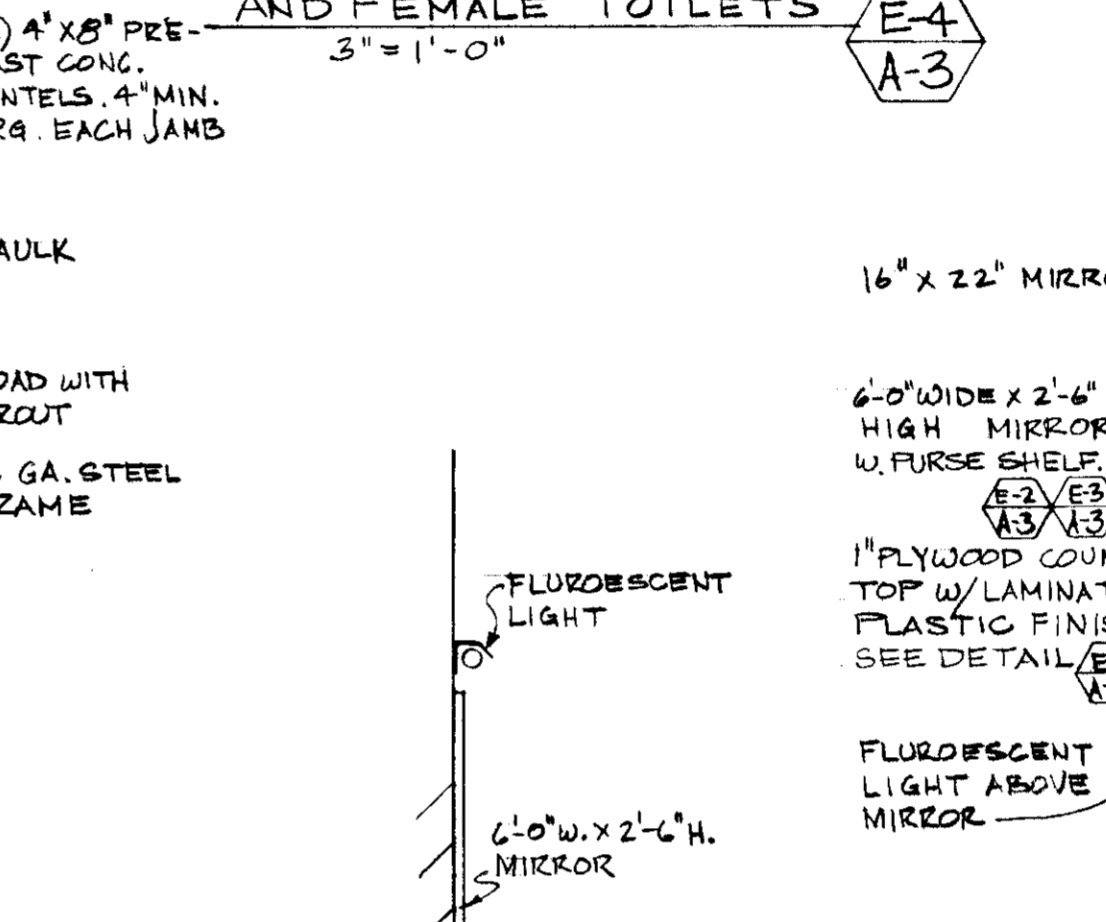 AND FEMALE TOILETS
3" = 1'-0"
E-4
A-3
) 4" X 8" PRE-
AST CONC.
NTELS. 4" MIN.
RG. EACH JAMB
AULK
OAD WITH
ROUT
GA. STEEL
RAME
FLUROESCENT
LIGHT
6'-0" W. X 2'-6" H.
MIRROR
16" X 22" MIRRO
6'-0" WIDE X 2'-6"
HIGH MIRROR
W. PURSE SHELF.
E-2 E-3
A-3 A-3
1" PLYWOOD COUN
TOP W/ LAMINAT
PLASTIC FINIS
SEE DETAIL E
A-
FLUROESCENT
LIGHT ABOVE
MIRROR